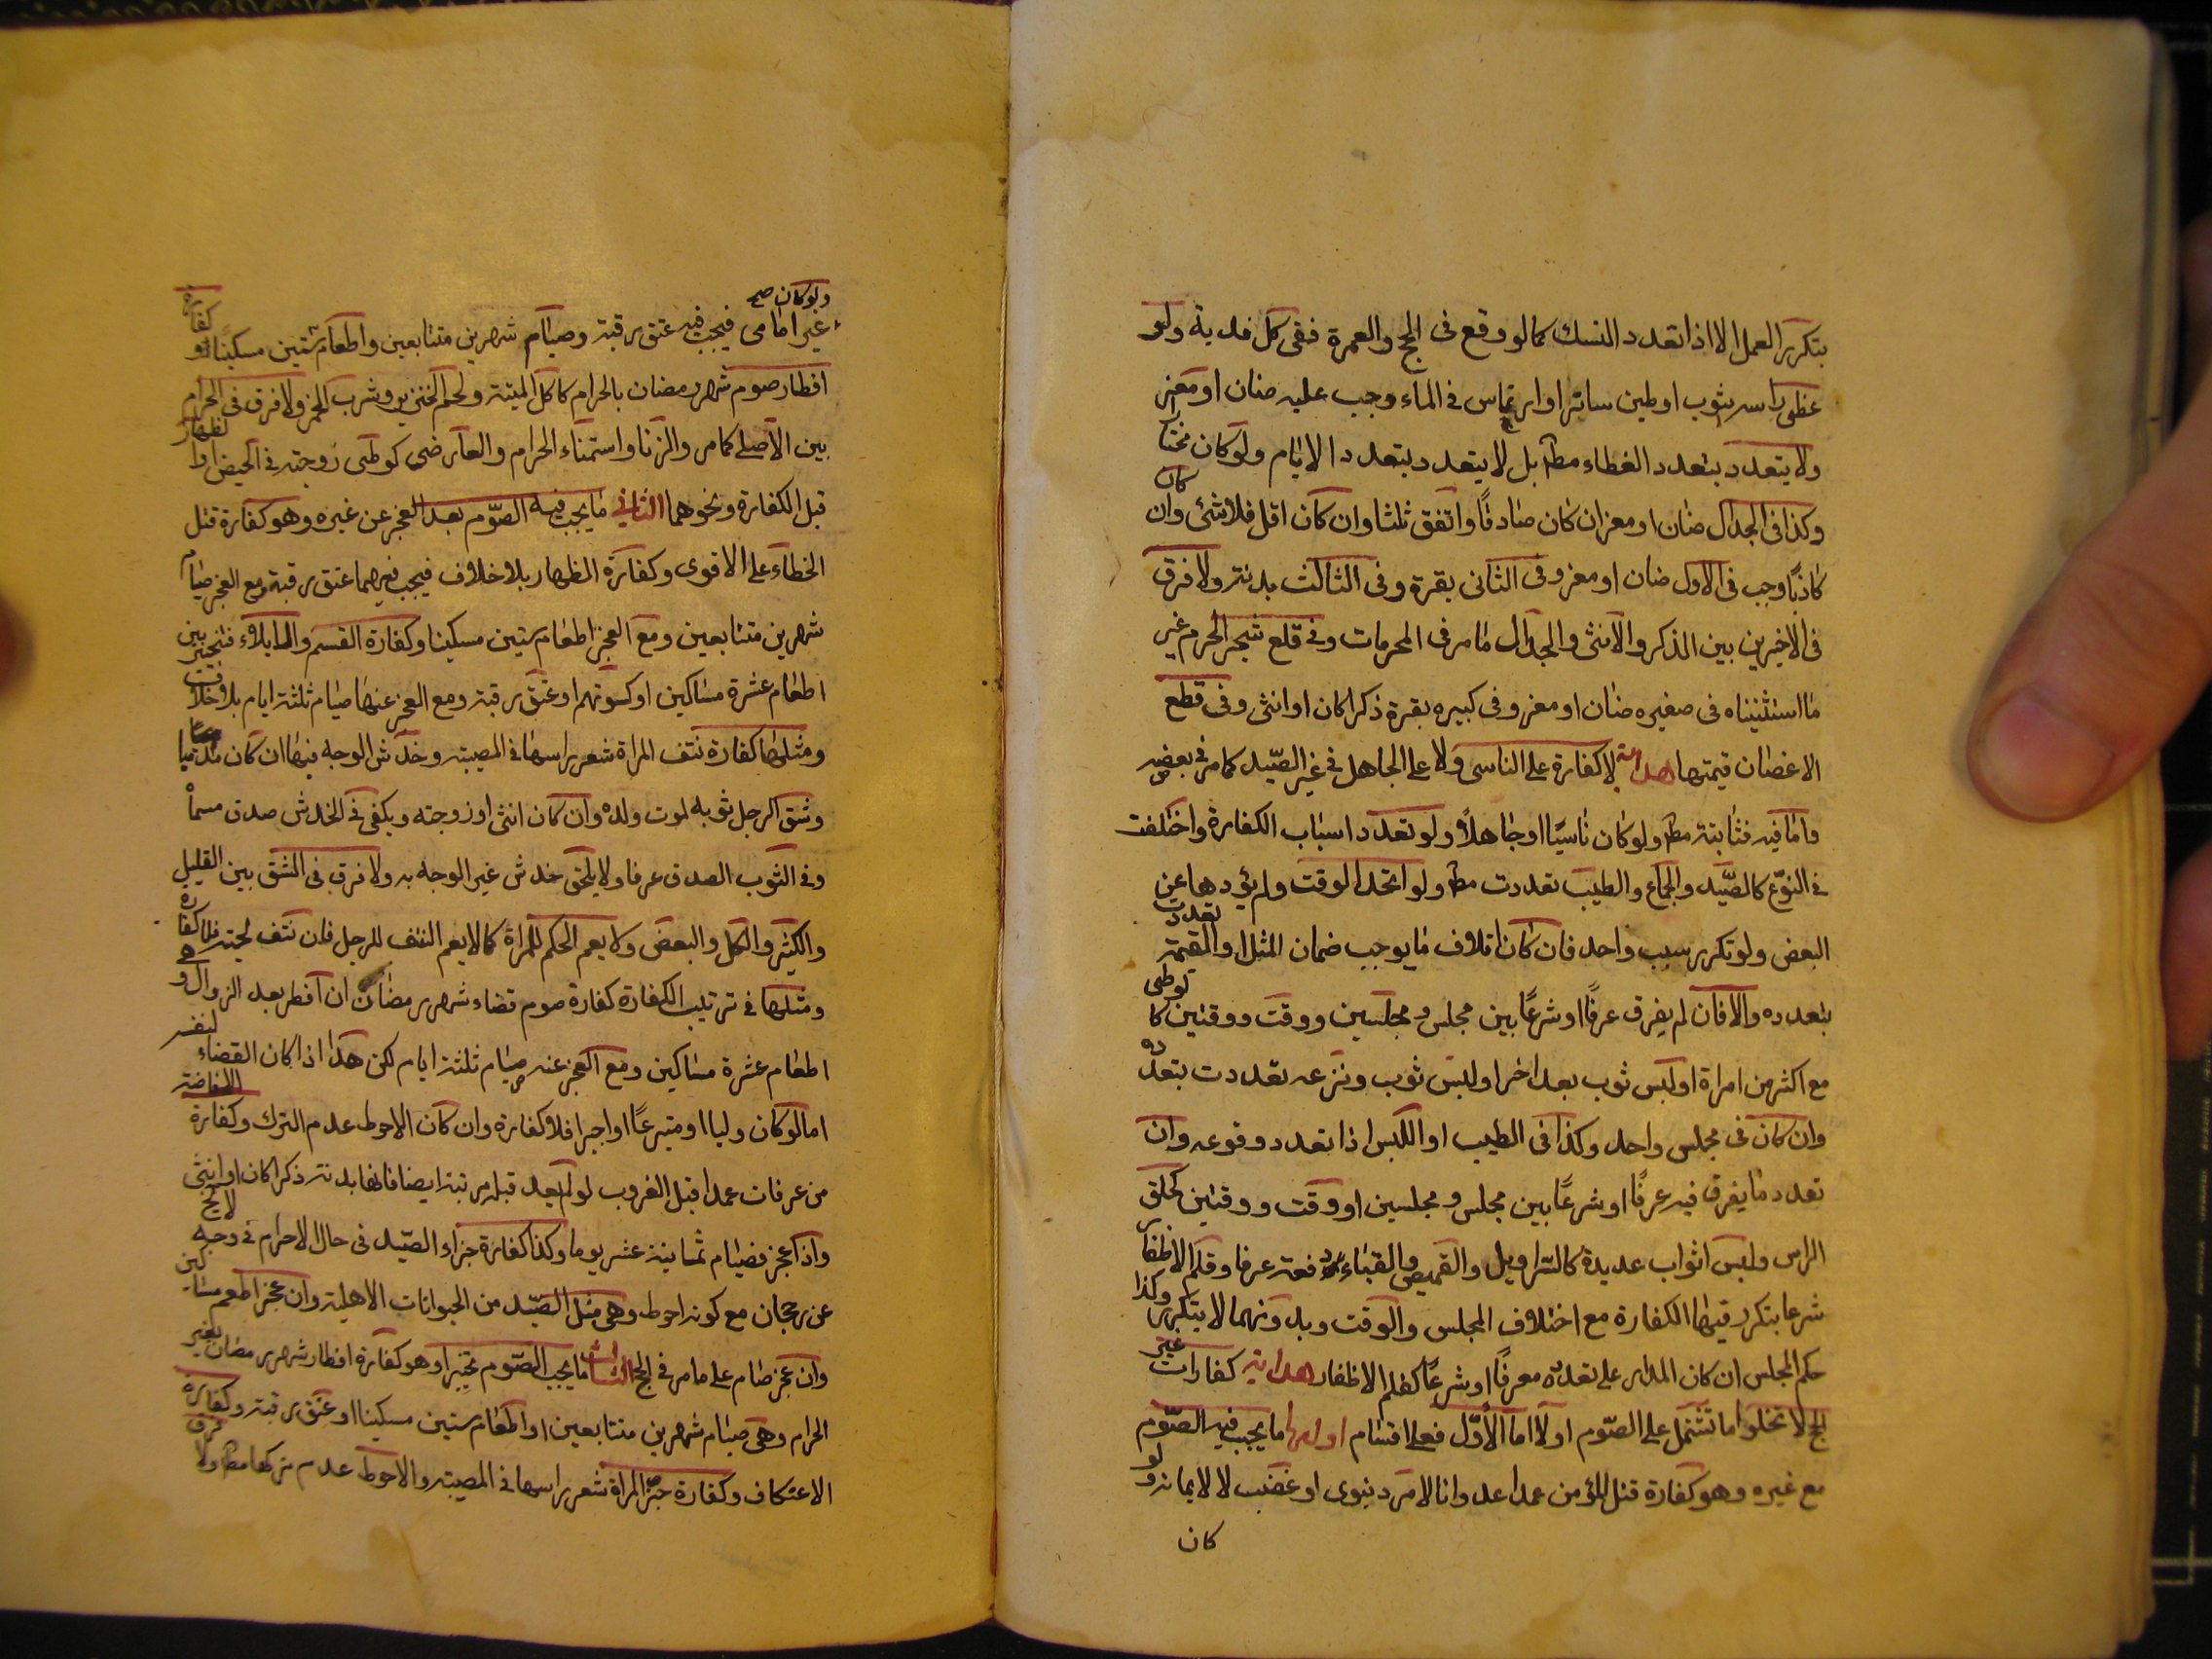 بتكرر العمل الا اذا تعدد النسك كما لو وقع فى الحج والعمرة ففى كل فدية ولو
غطى راسه بثوب او طين ساتر او ارتماس فى الماء وجب عليه ضان او معز
ولا يتعدد بتعدد الغطاء مط بل لا يتعدد بتعدد الايام ولو كان مختارا
وكذا فى الجدال ضان او معز ان كان صادقًا واتفق ثلثا وان كان اقل فلا شئ وان كان
كاذبًا وجب فى الاول ضان او معز وفى الثانى بقرة وفى الثالث بدنة ولا فرق
فى الاخيرين بين الذكر والانثى والجدال ما مر فى المحرمات وفى قلع شجر الحرم غير
ما استثنيناه فى صغيره ضان او معز وفى كبيره بقرة ذكرا كان او انثى وفى قطع
الاغصان قيمتها هداية لا كفارة على الناسى ولا على الجاهل فى غير الصّيد كما مر فى بعض
واما فيه فثابتة مط ولو كان ناسيًا او جاهلًا ولو تعدد اسباب الكفارة واختلفت
فى النوّع كالصّيد والجماع والطيب تعددت مط ولو اتحد الوقت ولم يؤدها عن
البعض ولو تكرر سبب واحد فان كان اتلاف ما يوجب ضمان المثل او القيمة تعددت
بتعدده والا فان لم يفرق عرفًا او شرعًا بين مجلس ومجلسين ووقت ووقتين كالوطى
مع اكثر من امراة او لبس ثوب بعد اخر او لبس ثوب ونزعه تعددت بتعدده
وان كان فى مجلس واحد وكذا فى الطيب او اللبس اذا تعدد وقوعه وان
تعدد ما يفرق فيه عرفًا او شرعًا بين مجلس ومجلسين او وقت ووقتين كحلق
الراس ولبس اثواب عديدة كالسراويل والقميص والقباء دفعة عرفا وقلم الاظفار
شرعا بتكرر فيها الكفارة مع اختلاف المجلس والوقت وبدونهما لا يتكرر وكذا
حكم المجلس ان كان المدار على تعدده عرفًا او شرعًا كقلم الاظفار هداية كفارات غير
الحج لا تخلو اما تشتمل على الصّوم او لا اما الأوّل فعلى اقسام اولها ما يجب فيه الصّوم
مع غيره وهو كفارة قتل المؤمن عمدا عدوانا لامر دنيوى او غضب لا لايمانه ولو
كان
ولو كان صح
غير امامى فيجب فيه عتق رقبة وصيام شهرين متتابعين واطعام ستين مسكينًا او كفارة
افطار صوم شهر رمضان بالحرام كاكل الميتة ولحم الخنزير وشرب الخمر ولا فرق فى الحرام
بين الاصلى كما مر والزنا واستمناء الحرام والعارضى كوطى زوجته فى الحيض او الظهار
قبل الكفارة ونحوهما الثانى ما يجب فيه الصّوم بعد العجز عن غيره وهو كفارة قتل
الخطاء على الاقوى وكفارة الظهار بلا خلاف فيجب فيهما عتق رقبة ومع العجز صيام
شهرين متتابعين ومع العجز اطعام ستين مسكينا وكفارة القسم والايلاء فتخير بين
اطعام عشرة مساكين او كسوتهم او عتق رقبة ومع العجز عنها صيام ثلثة ايام بلا خلاف
ومثلها كفارة نتف المراة شعر راسها فى المصيبة وخدش الوجه فيها ان كان مدميا
وشق الرجل ثوبه لموت ولده وان كان انثى او زوجته ويكفى فى الخدش صدق مسماه
وفى الثوب الصدق عرفا ولا يلحق خدش غير الوجه به ولا فرق فى الشق بين القليل
والكثير والكل والبعض ولا يعم الحكم للمراة كما لا يعم النتف للرجل فان نتف لحيته فلا كفارة
ومثلها فى ترتيب الكفارة كفارة صوم قضاء شهر رمضان ان افطر بعد الزوال وهى
اطعام عشرة مساكين ومع العجز عنه صيام ثلثة ايام لكن هذا اذا كان القضاء لنفسه
اما لو كان وليا او متبرعًا او اجيرا فلا كفارة وان كان الاحوط عدم الترك وكفارة الافاضة
من عرفات عمدا قبل الغروب لو لم يعد قبله مرتبة ايضا فانها بدنة ذكرا كان او انثى
واذا عجز فصيام ثمانية عشر يوما وكذا كفارة جزاء الصّيد فى حال الاحرام فى وجه لا يخ
عن رجحان مع كونه احوط وهى مثل الصّيد من الحيوانات الاهلية وان عجز اطعم مساكين
وان عجز صام على ما مر فى الحج الثالث ما يجب الصّوم تخيرا وهو كفارة افطار شهر رمضان بغير
الحرام وهى صيام شهرين متتابعين او اطعام ستين مسكينا او عتق رقبة وكفارة
الاعتكاف وكفارة جز المراة شعر راسها فى المصيبة والاحوط عدم تركها مط ولا فرق